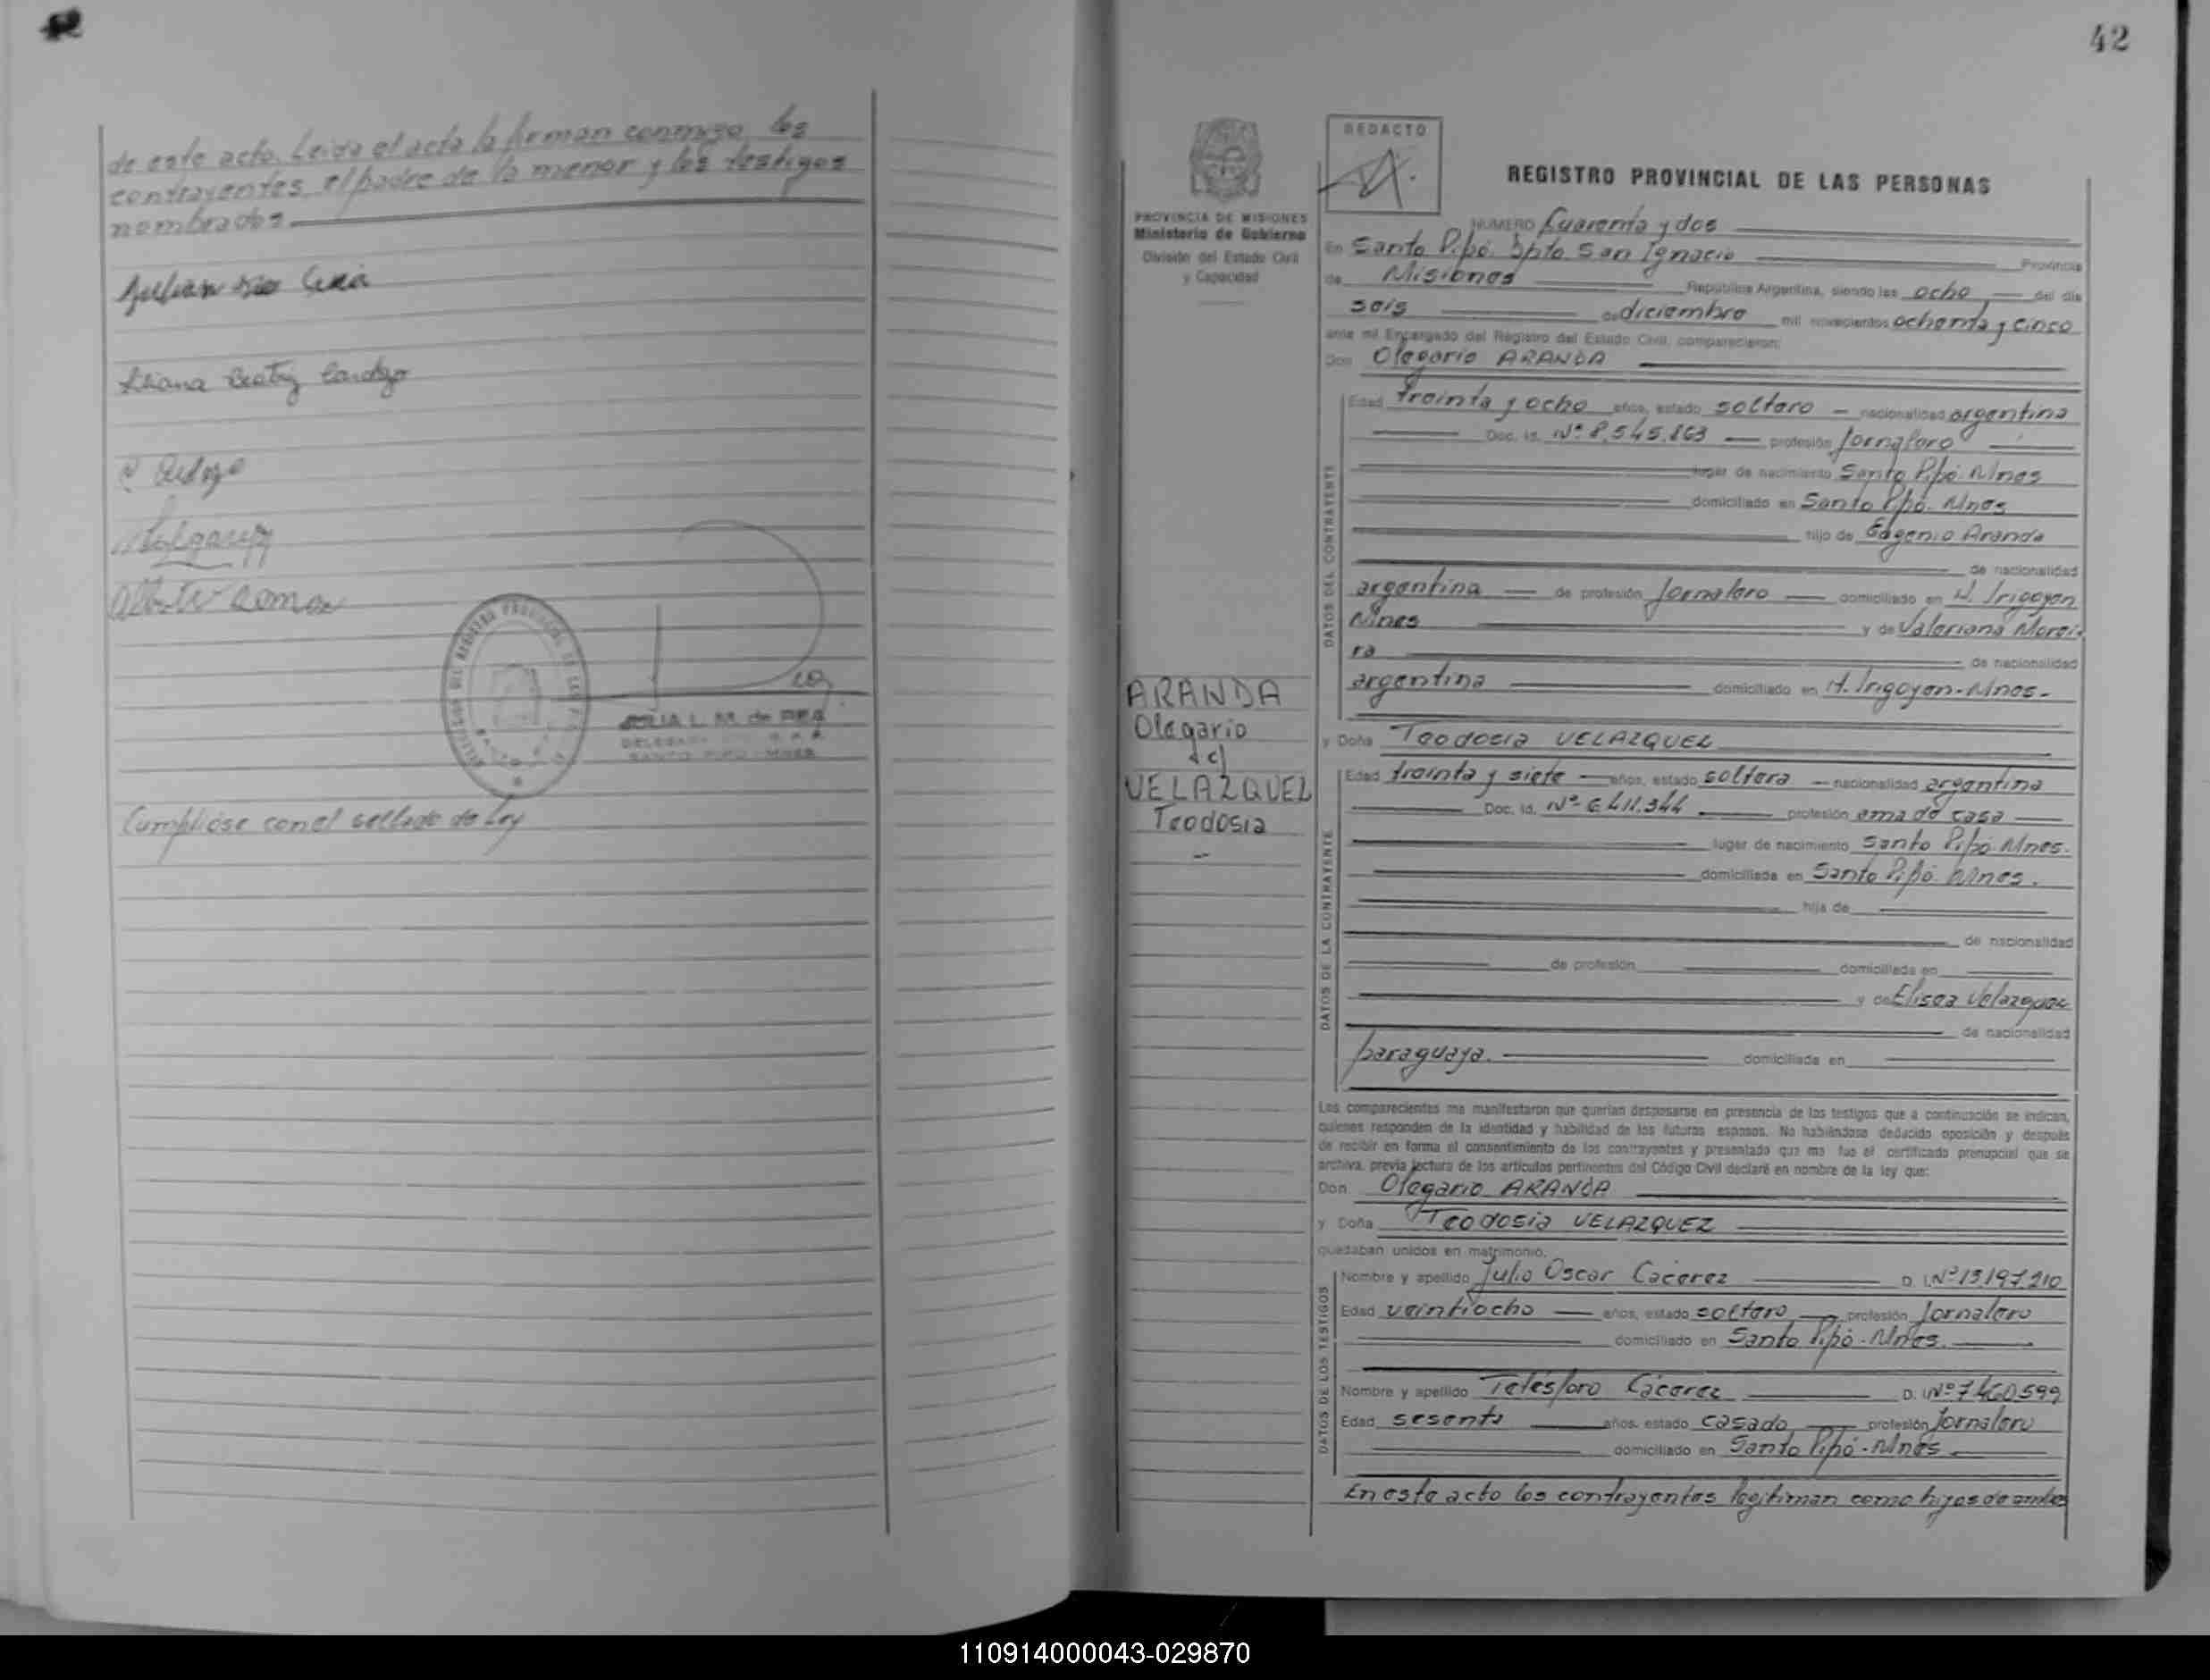 de este acto. Leida el acta la firman conmigo los
contrayentes, el padre de la menor y los testigos
nombrados.
Cumplióse con el sellado de Ley
JULIA L. M. de REA
SANTO PIPO - MNES
42
PROVINCIA DE MISIONES
Ministerio de Gobierno
División del Estado Civil
y Capacidad
REDACTO
REGISTRO PROVINCIAL DE LAS PERSONAS
NUMERO Cuarenta y dos
En Santo Pipó. Dpto San Ignacio Provincia
de Misiones República Argentina, siendo las ocho del día
seis de diciembre mil novecientos ochenta y cinco
ante mí Encargado del Registro del Estado Civil, comparecieron:
Don Olegario ARANDA
DATOS DEL CONTRAYENTE
Edad treinta y ocho años, estado soltero nacionalidad argentina
Doc. Id. Nº 8.545.863 profesión Jornalero
lugar de nacimiento Santo Pipó. Mnes
domiciliado en Santo Pipó. Mnes
hijo de Eugenio Aranda
de nacionalidad
argentina de profesión Jornalero domiciliado en H. Irigoyen
Mnes y de Valeriana Morei
ra de nacionalidad
argentina domiciliado en H. Irigoyen - Mnes -
ARANDA
Olegario
c/
VELAZQUEZ
Teodosia
y Doña Teodosia VELAZQUEZ
DATOS DE LA CONTRAYENTE
Edad treinta y siete años, estado soltera nacionalidad argentina
Doc. Id. Nº 6.411.344 profesión ama de casa
lugar de nacimiento Santo Pipó. Mnes.
domiciliada en Santo Pipó. Mnes.
hija de
de nacionalidad
de profesión domiciliada en
y de Elisea Velazquez
de nacionalidad
paraguaya. domiciliada en
Los comparecientes me manifestaron que querían desposarse en presencia de los testigos que a continuación se indican,
quienes responden de la identidad y habilidad de los futuros esposos. No habiéndose deducido oposición y después
de recibir en forma el consentimiento de los contrayentes y presentado que me fue el certificado prenupcial que se
archiva, previa lectura de los artículos pertinentes del Código Civil declaré en nombre de la ley que:
Don Olegario ARANDA
y Doña Teodosia VELAZQUEZ
quedaban unidos en matrimonio.
DATOS DE LOS TESTIGOS
Nombre y apellido Julio Oscar Cácerez D. I. Nº 13.197.210
Edad veintiocho años, estado soltero profesión Jornalero
domiciliado en Santo Pipó - Mnes.
Nombre y apellido Telésforo Cácerez D. I. Nº 7.460.599
Edad sesenta años, estado casado profesión Jornalero
domiciliado en Santo Pipó - Mnes
En este acto los contrayentes legitiman como hijos de ambos
110914000043-029870